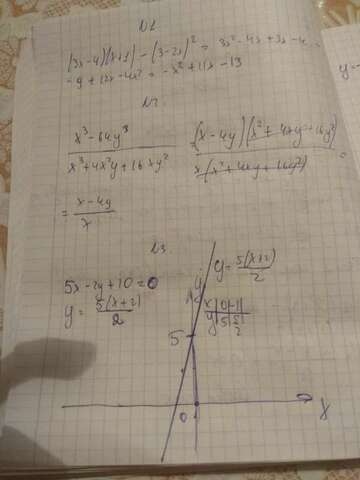 N1
(3x-4)(x+1)-(3-2x)² = 3x²-4x+3x-4-
-9+12x-4x² = -x²+11x-13
N2
x³-64y³ / x³+4x²y+16xy² = (x-4y)(x²+4xy+16y²) / x(x²+4xy+16y²) =
= x-4y / x
N3
5x-2y+10=0
y = 5(x+2) / 2
y = 5(x+2) / 2
y
x | 0 | -1
y | 5 | 5/2
5
0
x
y=